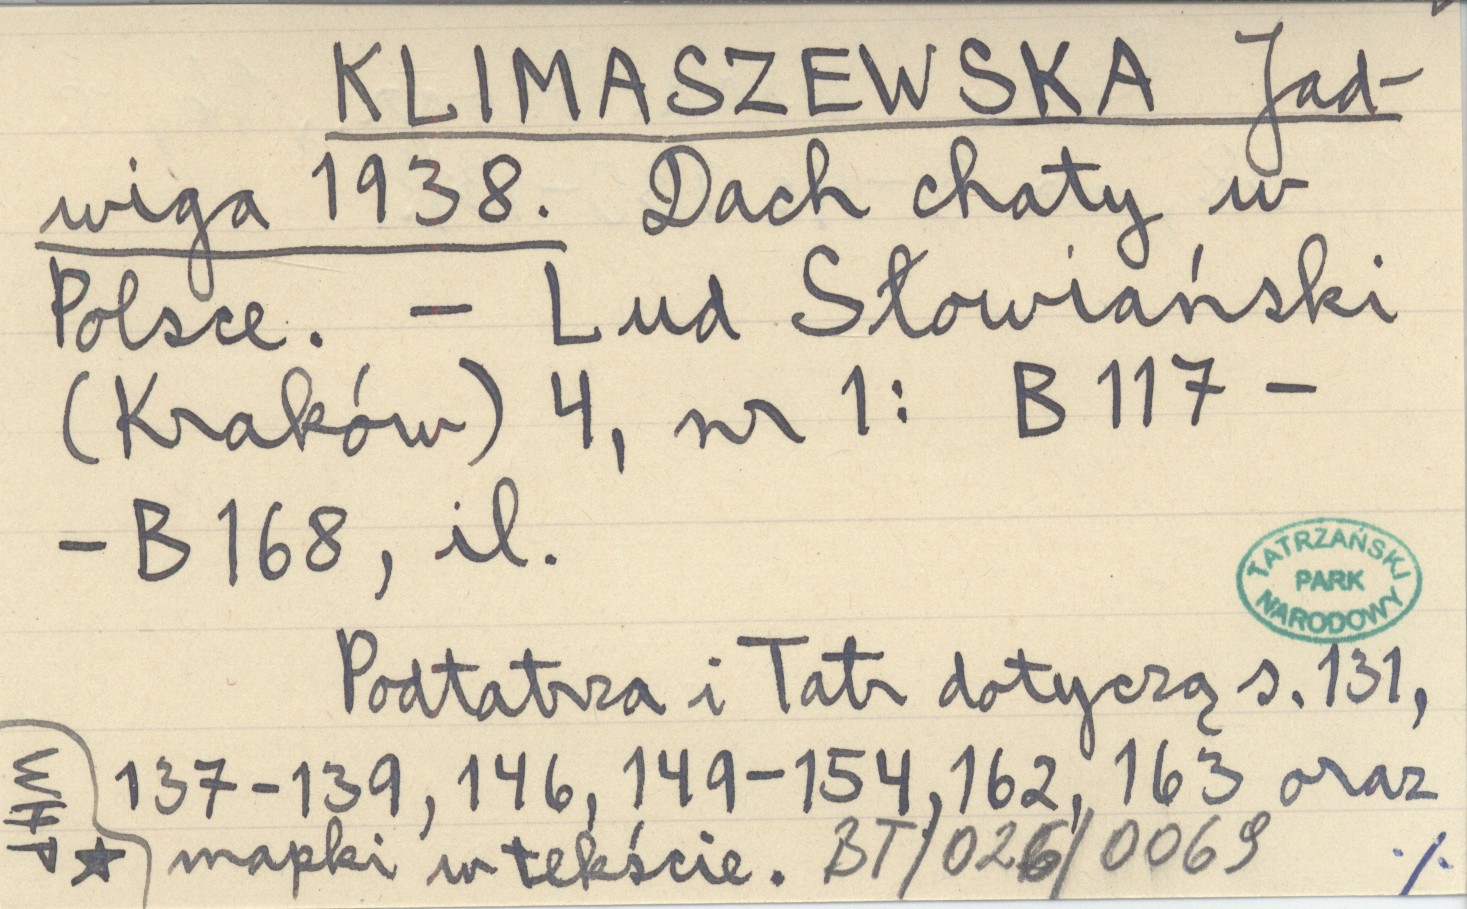 KLIMASZEWSKA Jad-
wiga 1938. Dach chaty w
Polsce. – Lud Słowiański
(Kraków) 4, nr 1: B 117 –
– B 168, il.
TATRZAŃSKI
PARK
NARODOWY
Podtatrza i Tatr dotyczą s. 131,
137-139, 146, 149-154, 162, 163 oraz
mapki w tekście. BT/026/0069